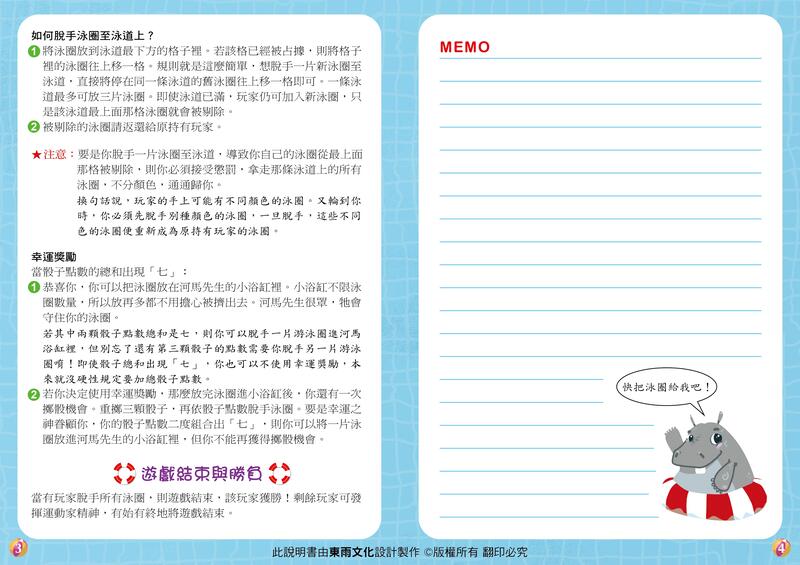 如何脫手泳圈至泳道上？
1 將泳圈放到泳道最下方的格子裡。若該格已經被占據，則將格子
裡的泳圈往上移一格。規則就是這麼簡單，想脫手一片新泳圈至
泳道，直接將停在同一條泳道的舊泳圈往上移一格即可。一條泳
道最多可放三片泳圈。即使泳道已滿，玩家仍可加入新泳圈，只
是該泳道最上面那格泳圈就會被剔除。
2 被剔除的泳圈請返還給原持有玩家。
★注意：要是你脫手一片泳圈至泳道，導致你自己的泳圈從最上面
那格被剔除，則你必須接受懲罰，拿走那條泳道上的所有
泳圈，不分顏色，通通歸你。
換句話說，玩家的手上可能有不同顏色的泳圈。又輪到你
時，你必須先脫手別種顏色的泳圈，一旦脫手，這些不同
色的泳圈便重新成為原持有玩家的泳圈。
幸運獎勵
當骰子點數的總和出現「七」：
1 恭喜你，你可以把泳圈放在河馬先生的小浴缸裡。小浴缸不限泳
圈數量，所以放再多都不用擔心被擠出去。河馬先生很罩，牠會
守住你的泳圈。
若其中兩顆骰子點數總和是七，則你可以脫手一片游泳圈進河馬
浴缸裡，但別忘了還有第三顆骰子的點數需要你脫手另一片游泳
圈唷！即使骰子總和出現「七」，你也可以不使用幸運獎勵，本
來就沒硬性規定要加總骰子點數。
2 若你決定使用幸運獎勵，那麼放完泳圈進小浴缸後，你還有一次
擲骰機會。重擲三顆骰子，再依骰子點數脫手泳圈。要是幸運之
神眷顧你，你的骰子點數二度組合出「七」，則你可以將一片泳
圈放進河馬先生的小浴缸裡，但你不能再獲得擲骰機會。
遊戲結束與勝負
當有玩家脫手所有泳圈，則遊戲結束，該玩家獲勝！剩餘玩家可發
揮運動家精神，有始有終地將遊戲結束。
3
MEMO
快把泳圈給我吧！
4
此說明書由東雨文化設計製作 ©版權所有 翻印必究